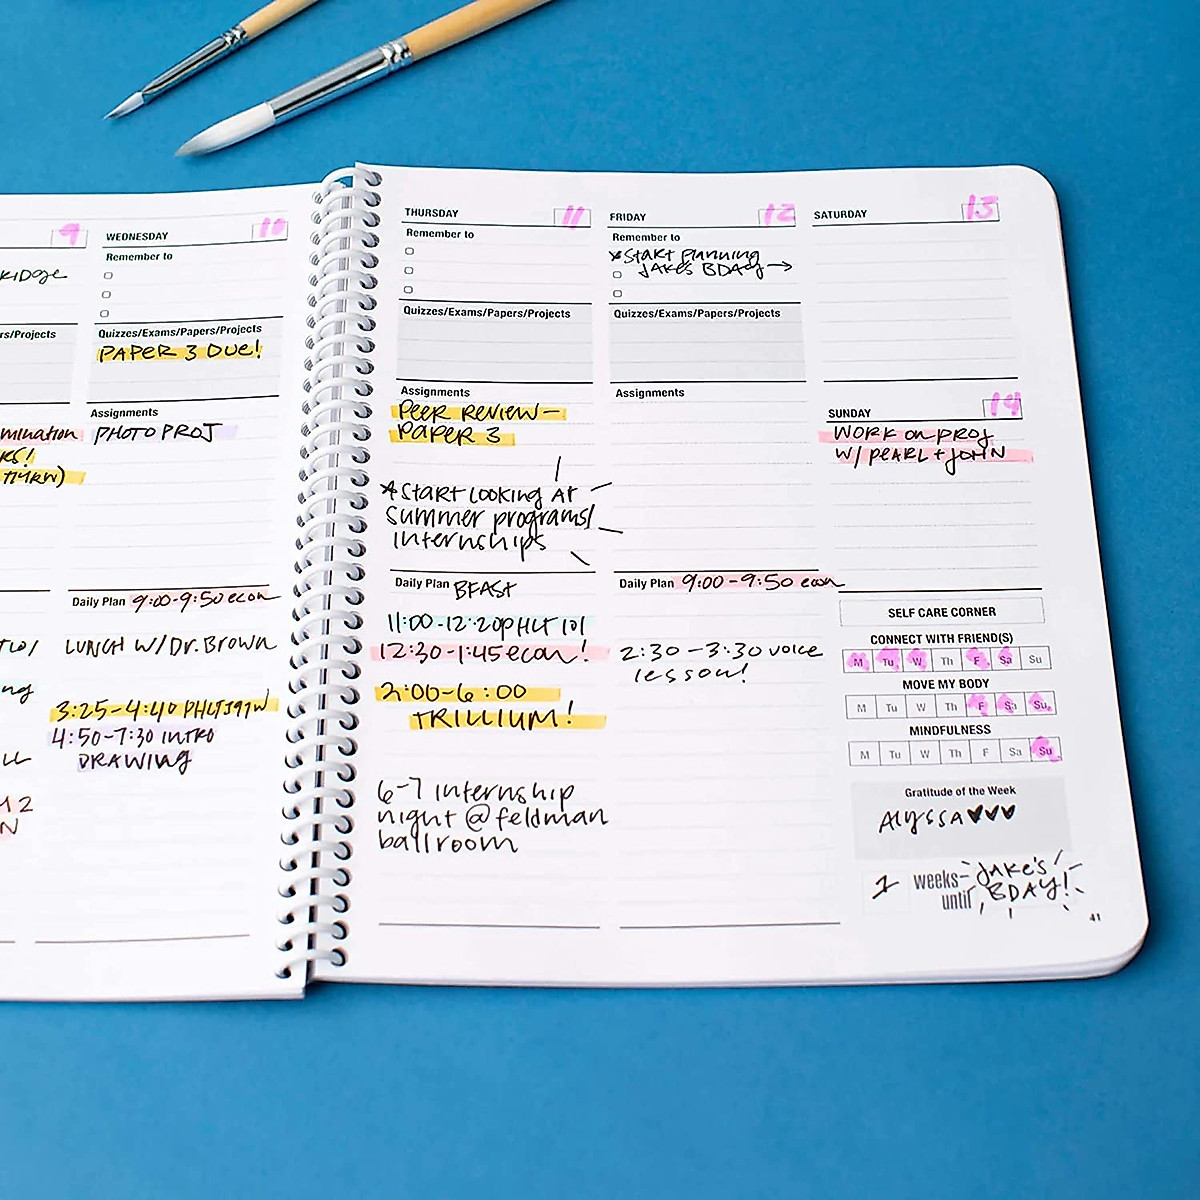 9
KIDGE
rs/Projects
mination
RS!
THRW)
WEDNESDAY 10
Remember to
Quizzes/Exams/Papers/Projects
PAPER 3 DUE!
Assignments
PHOTO PROJ
Daily Plan 9:00-9:50 econ
LUNCH W/Dr. Brown
3:25-4:40 PHLT197W
4:50-7:30 INTRO
DRAWING
THURSDAY 11
Remember to
Quizzes/Exams/Papers/Projects
Assignments
PEER REVIEW-
PAPER 3
*START LOOKING AT
summer programs/
internships
Daily Plan BFAST
11:00-12:20 PHLT 101
12:30-1:45 econ!
2:00-6:00
TRILLIUM!
6-7 internship
night @ feldman
ballroom
FRIDAY 12
Remember to
*START planning
JAKE'S BDAY →
Quizzes/Exams/Papers/Projects
Assignments
Daily Plan 9:00-9:50 econ
2:30-3:30 voice
lesson!
SATURDAY 13
SUNDAY 14
WORK on PROJ
W/ PEARL + JOHN
SELF CARE CORNER
CONNECT WITH FRIEND(S)
M Tu W Th F Sa Su
MOVE MY BODY
M Tu W Th F Sa Su
MINDFULNESS
M Tu W Th F Sa Su
Gratitude of the Week
Alyssa ♥♥♥
2 weeks- JAKE'S
until BDAY!
41